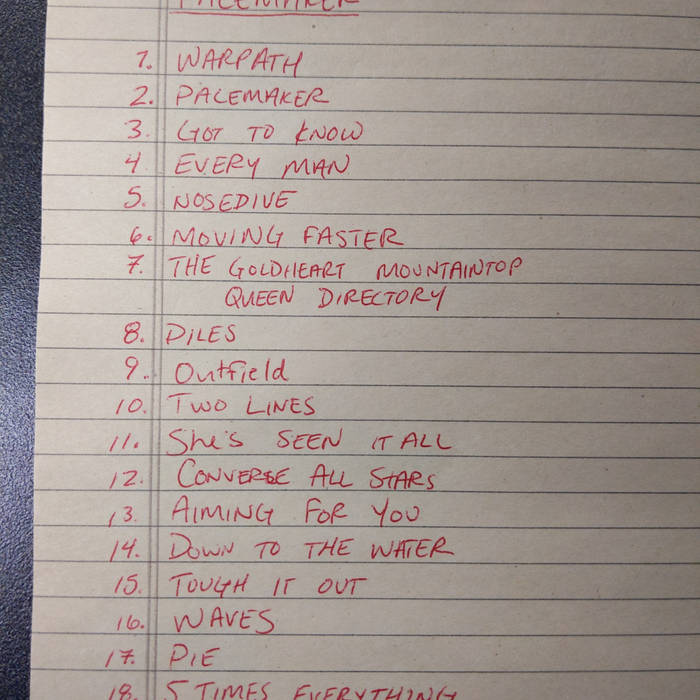 PACEMAKER
1. WARPATH
2. PACEMAKER
3. GOT TO KNOW
4 EVERY MAN
5. NOSEDIVE
6. MOVING FASTER
7. THE GOLDHEART MOUNTAINTOP
QUEEN DIRECTORY
8. PILES
9. Outfield
10. TWO LINES
11. She's SEEN IT ALL
12. CONVERSE ALL STARS
13. AIMING FOR YOU
14. DOWN TO THE WATER
15. TOUGH IT OUT
16. WAVES
17. PIE
18. 5 TIMES EVERYTHING